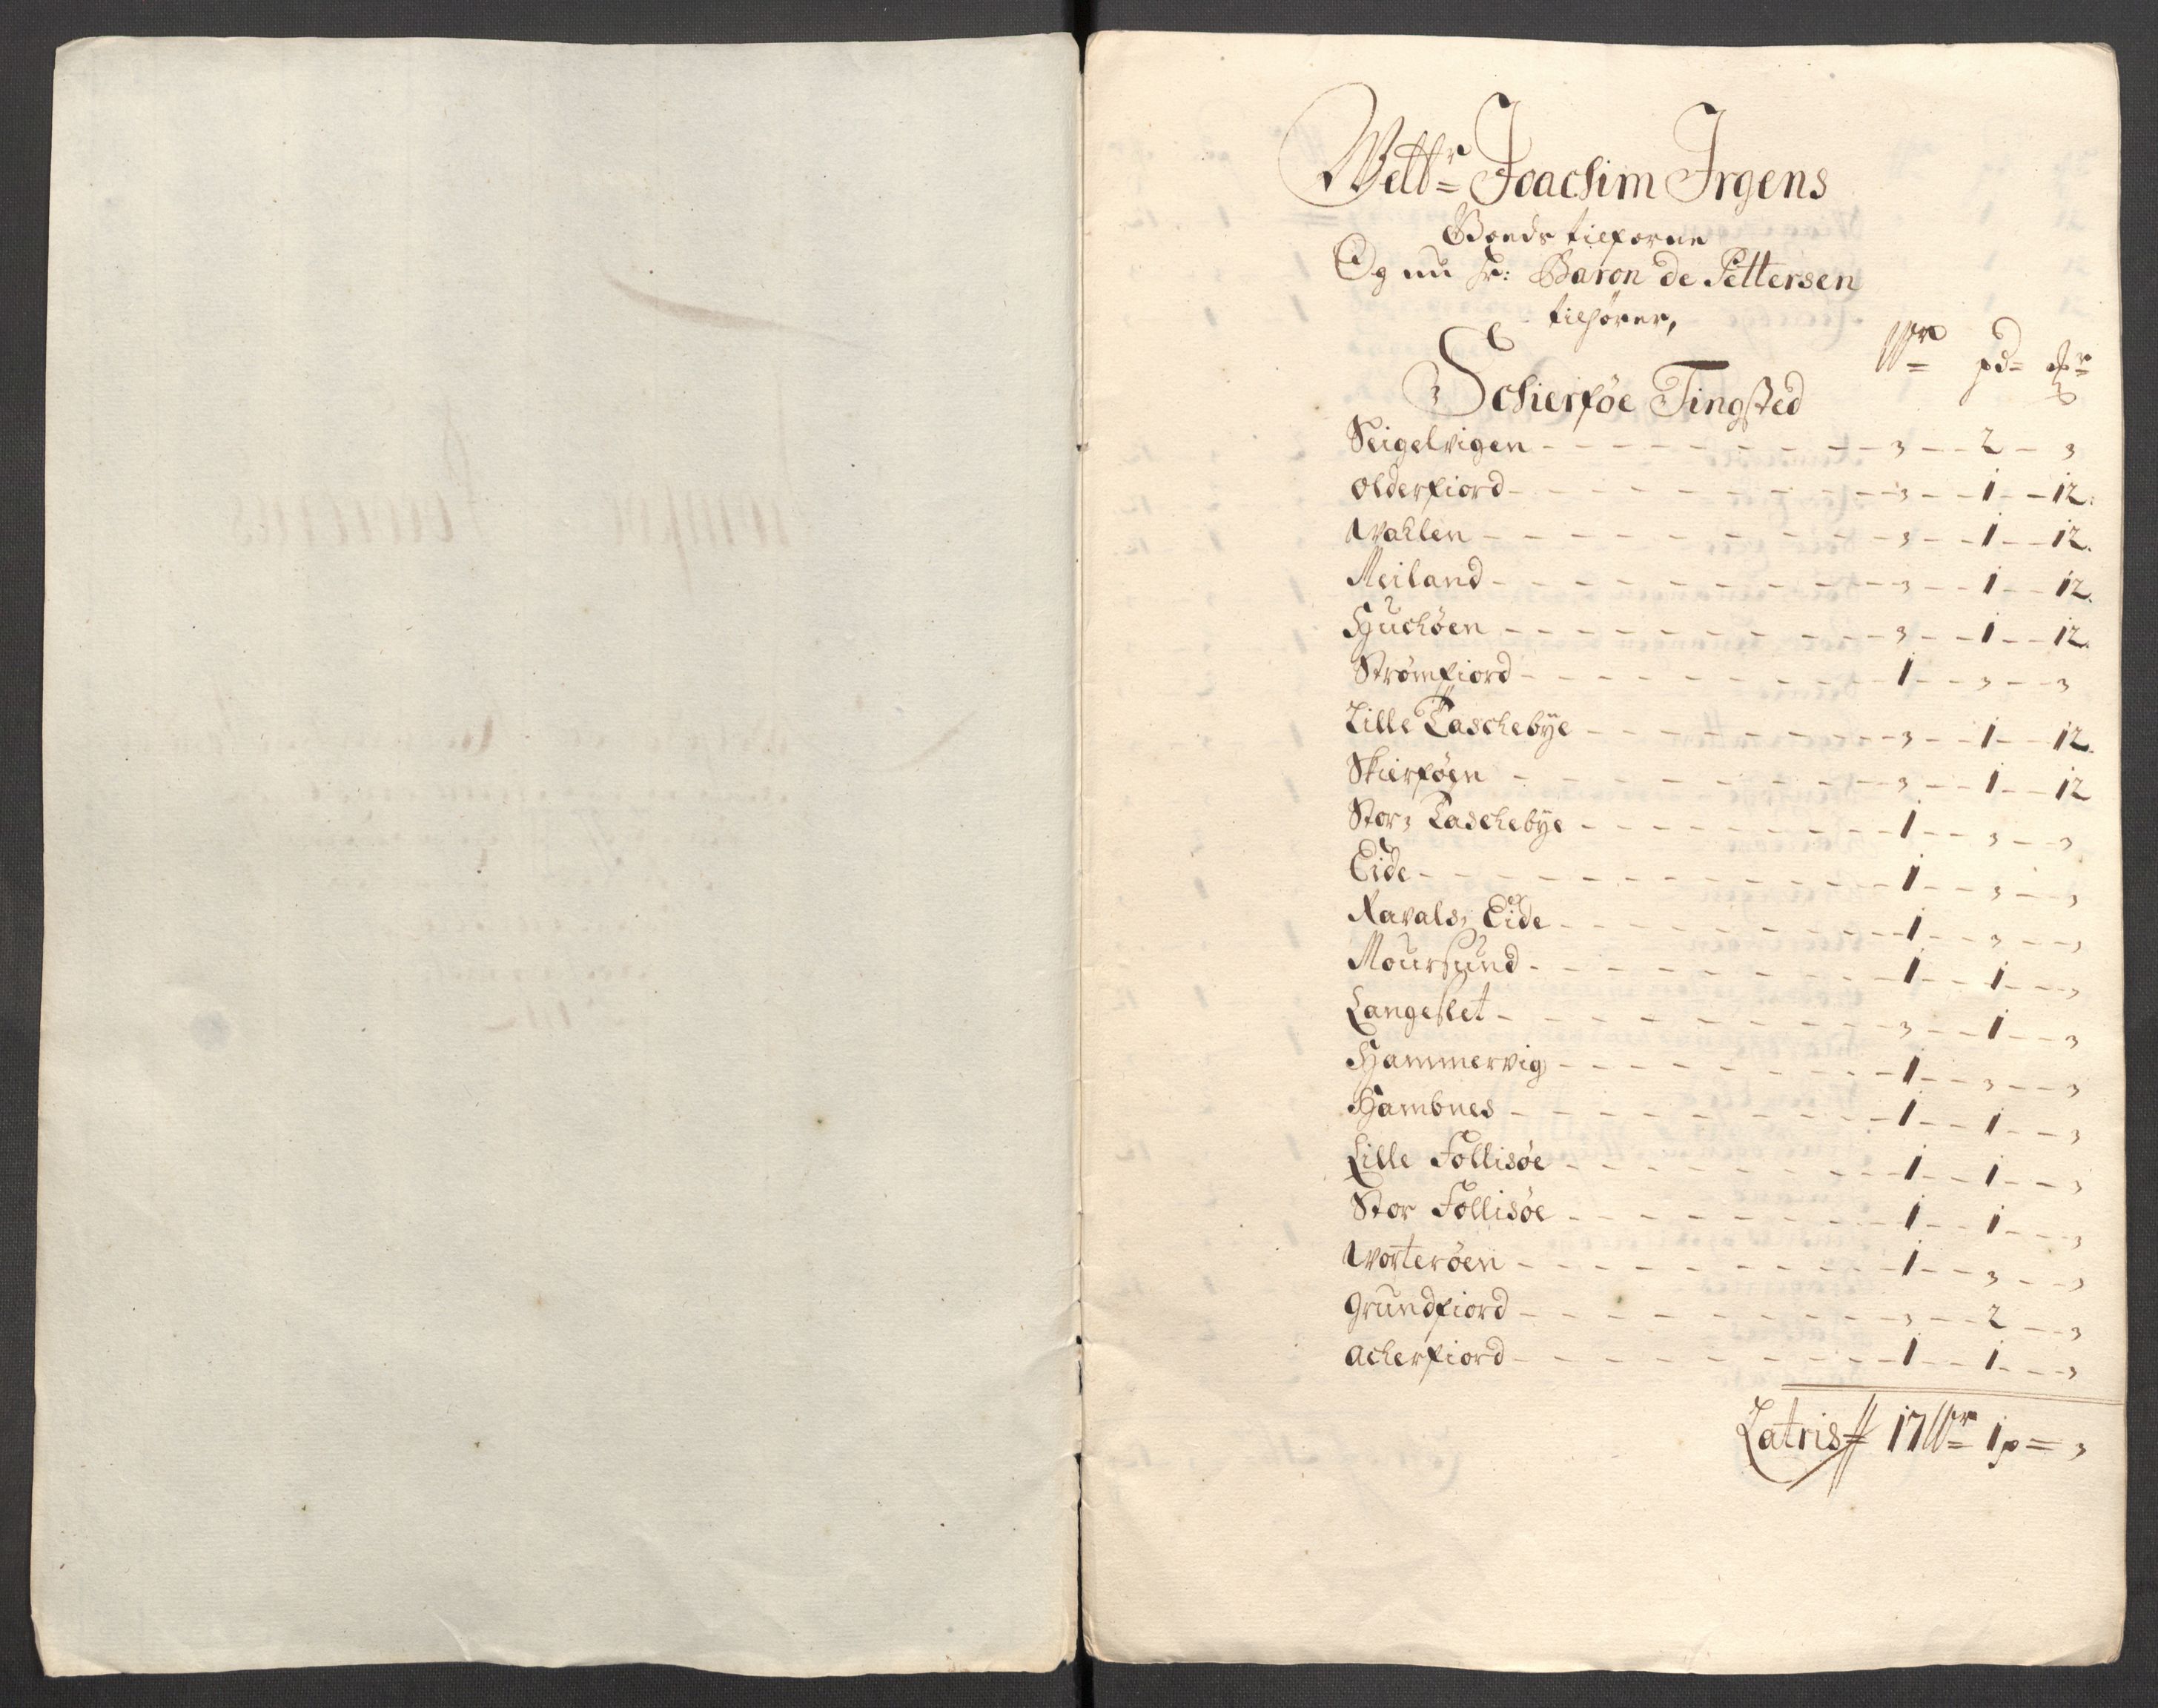 Welbr= Joachim Irgens
Goeds tilforne
Og nu hr: Baron de Pettersen
tilhører,
Schierføe Tingsted
Wr= pd= mr=
Seigelvigen - - - 3 - - 2 - 3
Olderfiord - - - 3 - - 1 - - 12:
Wahlen - - - 3 - - 1 - - 12.
Meiland - - - 3 - - 1 - - 12.
Huchøen - - - 3 - - 1 - - 12.
Strømfiord - - - 1 - - 3 - - 3
Lille Taschebye - - - 3 - - 1 - - 12.
Skierføen - - - 3 - - 1 - - 12
Stor, Taschebye - - - 1 - - 3 - - 3
Eide - - - 1 - - 3 - - 3
Ravals, Eide - - - 1 - - 3 - - 3
Moursund - - - 1 - - 1 - - 3
Langeslet - - - 3 - - 1 - - 3
Hammervig - - - 1 - - 3 - - 3
Hambnes - - - 1 - - 1 - - 3
Lille Follisøe - - - 1 - - 1 - - 3
Stor Follisøe - - - 1 - - 1 - - 3
Worterøen - - - 1 - - 3 - - 3
Grundfiord - - - 3 - - 2 - - 3
Acherfiord - - - 1 - - 1 - - 3
Latris 17 Wr= 1 p = 3